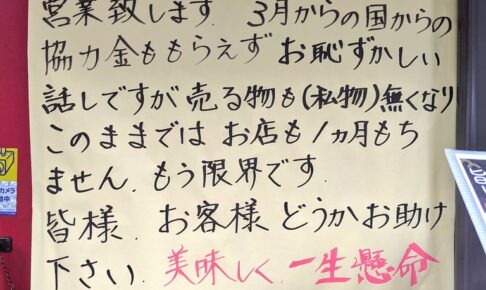 営業致します. 3月からの国からの
協力金ももらえず お恥ずかしい
話しですが 売る物も(私物)無くなり
このままでは お店も1ヵ月もち
ません. もう限界です.
皆様. お客様 どうかお助け
下さい. 美味しく 一生懸命
カメラ